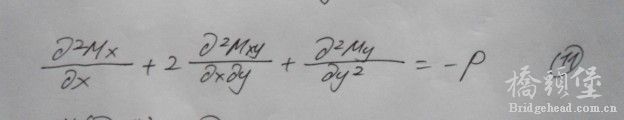 ∂²Mx/∂x + 2 ∂²Mxy/∂x∂y + ∂²My/∂y² = -P (11)
橋頭堡
Bridgehead.com.cn